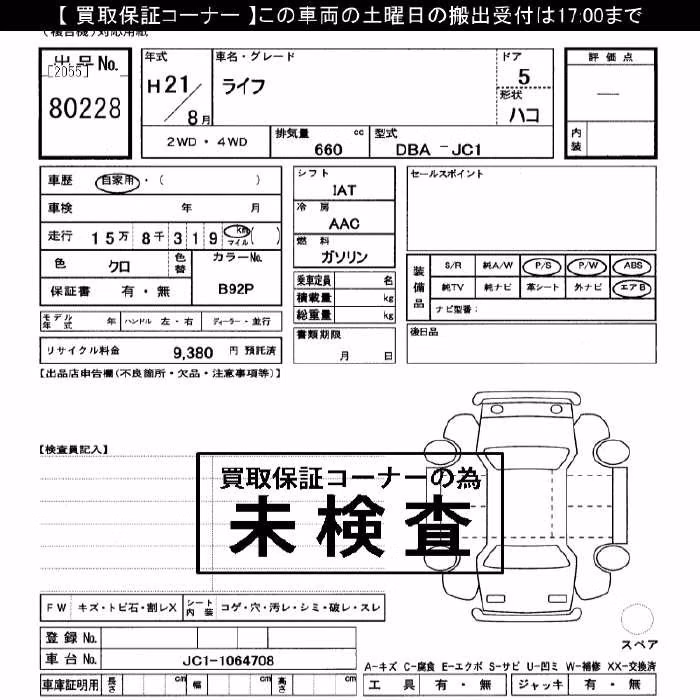 【 買取保証コーナー 】この車両の土曜日の搬出受付は17:00まで
(複合機)対応用紙
出品No.
[2055]
80228
年式
H21/8月
車名・グレード
ライフ
ドア
5
形状
ハコ
評価点
—
内装
2WD・4WD
排気量 cc
660
型式
DBA -JC1
車歴 自家用・( )
車検 年 月
走行 15万 8千 319 km マイル ( )
色 クロ
色替
カラーNo.
B92P
保証書 有・無
モデル年式 年
ハンドル 左・右
ディーラー・並行
リサイクル料金 9,380 円 預託済
シフト
IAT
冷房
AAC
燃料
ガソリン
乗車定員 名
積載量 kg
総重量 kg
書類期限
月 日
セールスポイント
装備品
S/R 純A/W P/S P/W ABS
純TV 純ナビ 革シート 外ナビ エアB
ナビ型番:
後日品
【出品店申告欄(不良箇所・欠品・注意事項等)】
【検査員記入】
買取保証コーナーの為
未検査
FW キズ・トビ石・割レX
シート内装 コゲ・穴・汚レ・シミ・破レ・スレ
登録No.
車台No. JC1-1064708
車庫証明用 長さ cm 幅 cm 高さ cm
スペア
A-キズ C-腐食 E-エクボ S-サビ U-凹ミ W-補修 XX-交換済
工具 有・無 ジャッキ 有・無